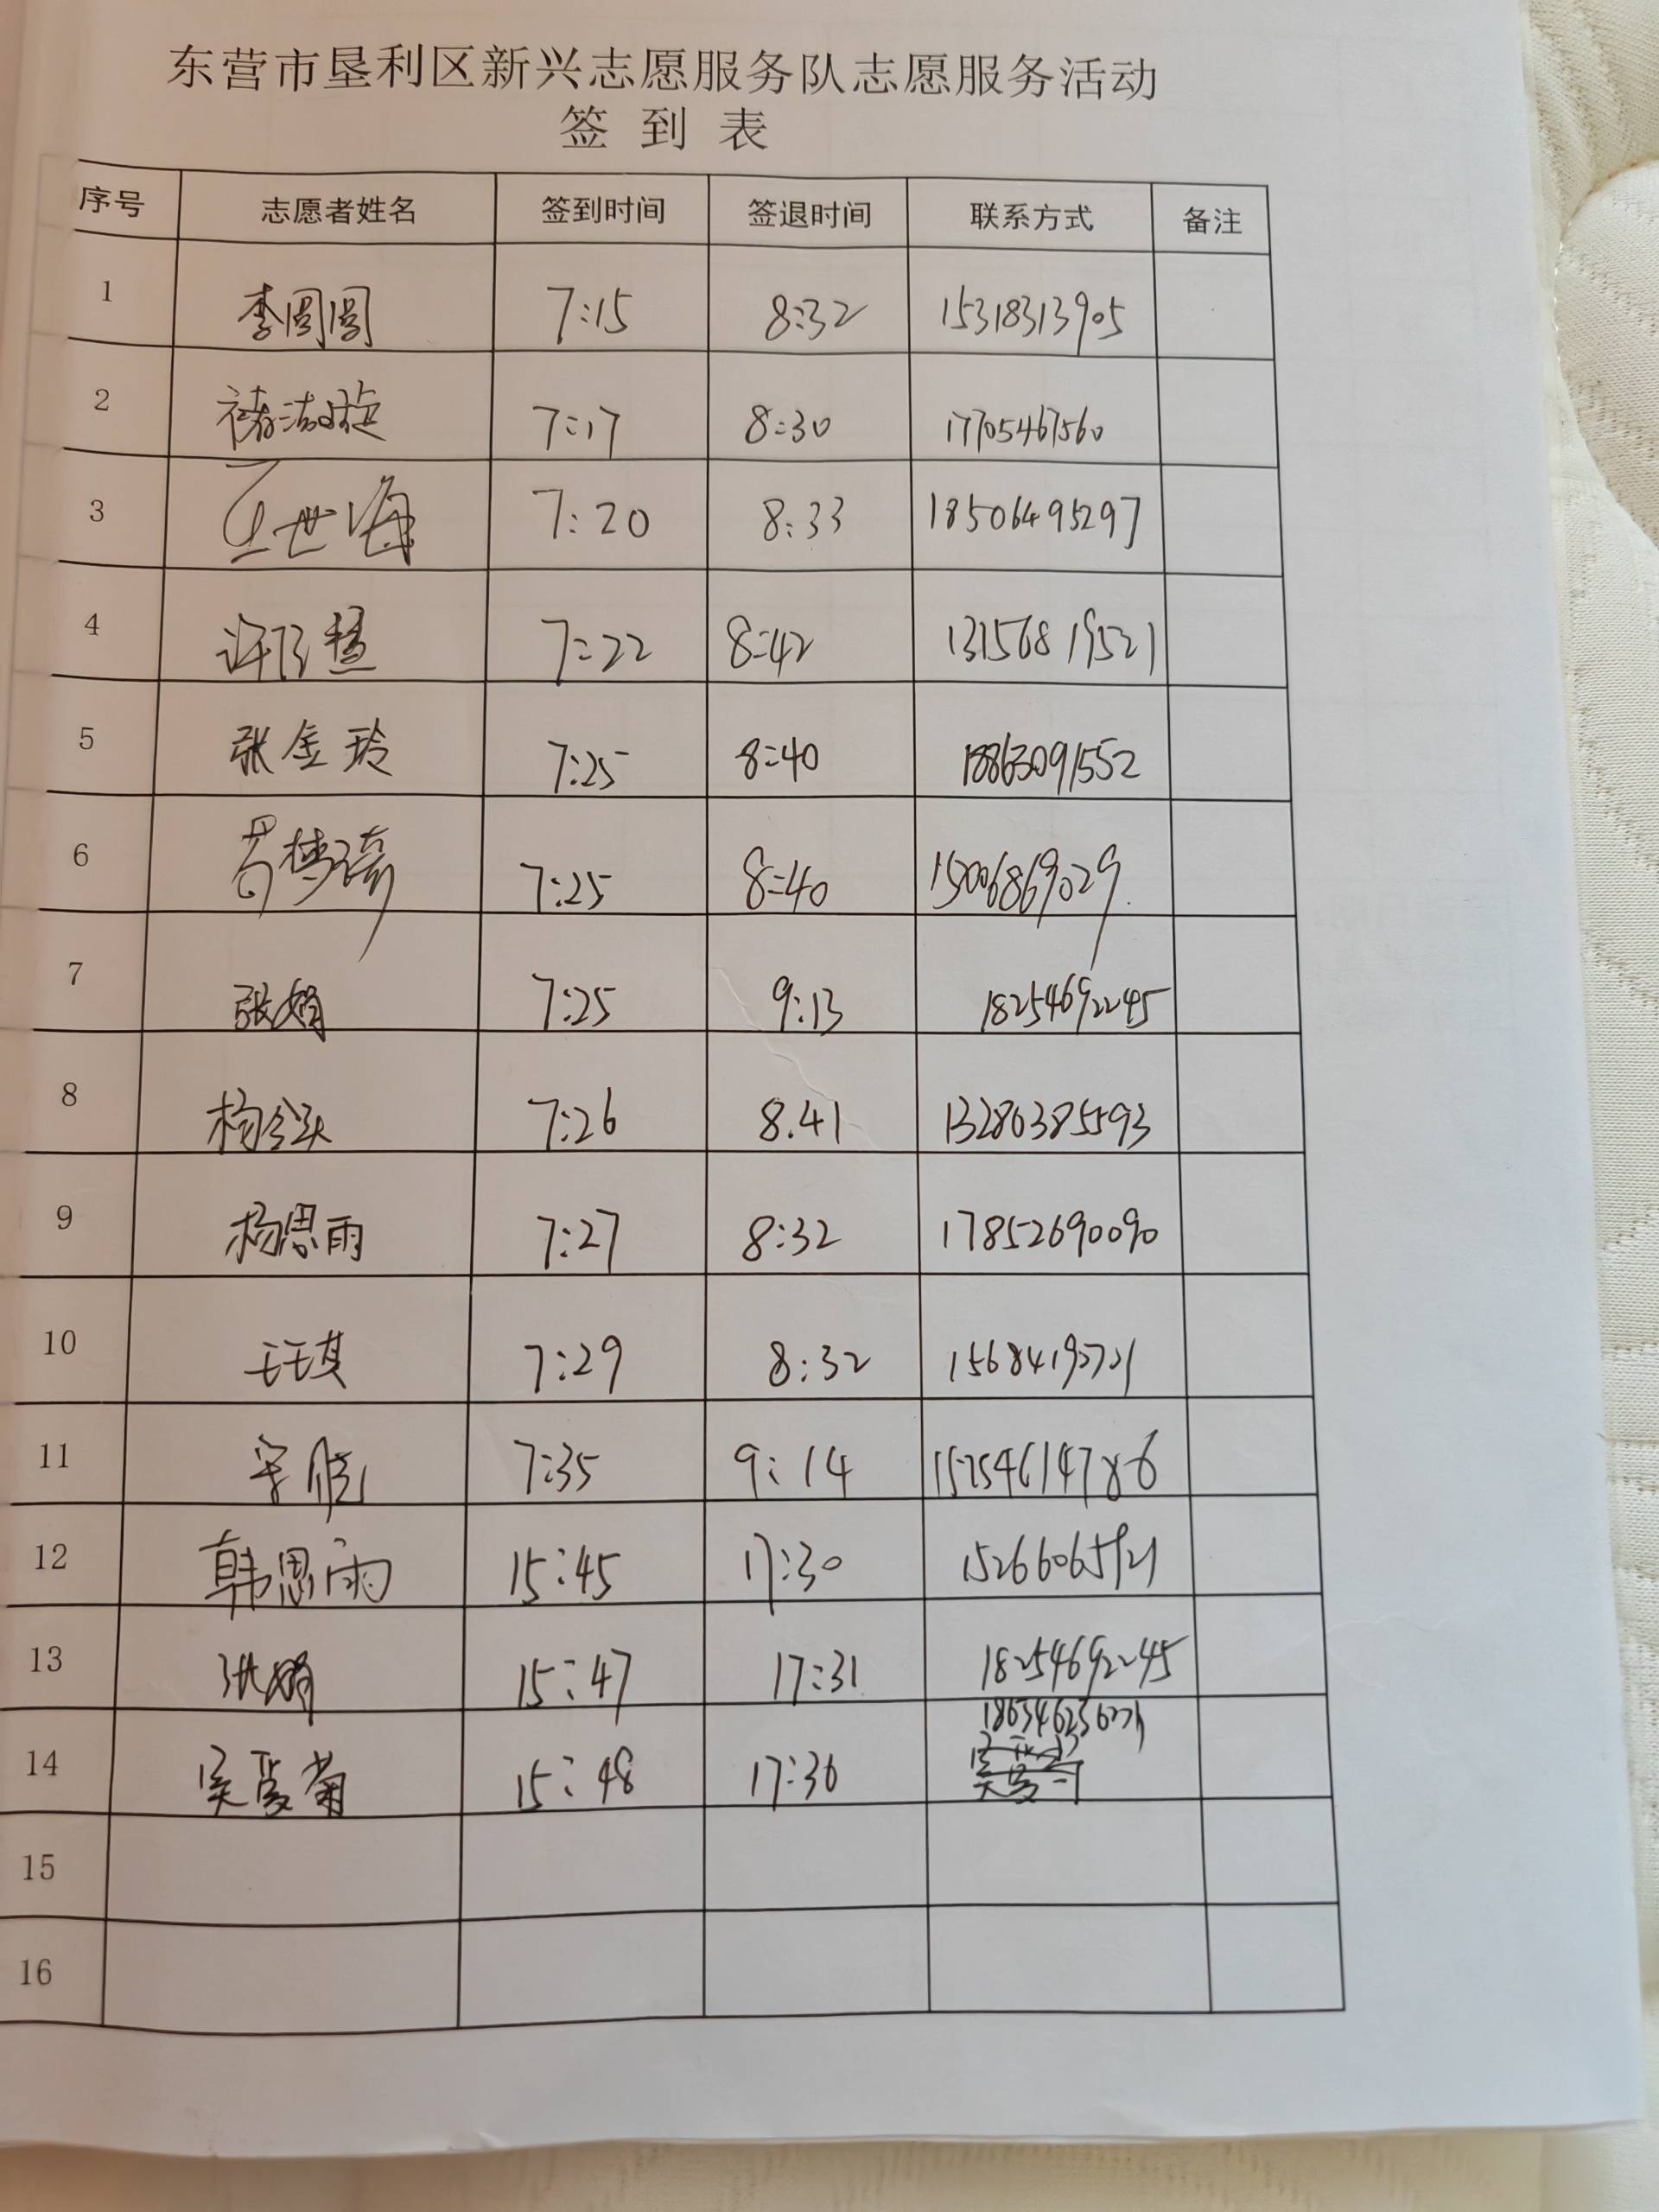 东营市垦利区新兴志愿服务队志愿服务活动
签到表
序号 志愿者姓名 签到时间 签退时间 联系方式 备注
1 李圆圆 7:15 8:32 15318313905
2 7:17 8:30 17705467560
3 王世海 7:20 8:33 18506495297
4 7:22 8:42 13156819521
5 张金玲 7:25 8:40 18863091552
6 7:25 8:40 15006869029
7 张娟 7:25 9:13 18254692245
8 7:26 8.41 13280385593
9 杨思雨 7:27 8:32 17852690090
10 王琪 7:29 8:32
11 7:35 9:14 15254614786
12 韩思雨 15:45 17:30 15266065921
13 张娟 15:47 17:31 18254692245
14 吴爱菊 15:48 17:36
15
16